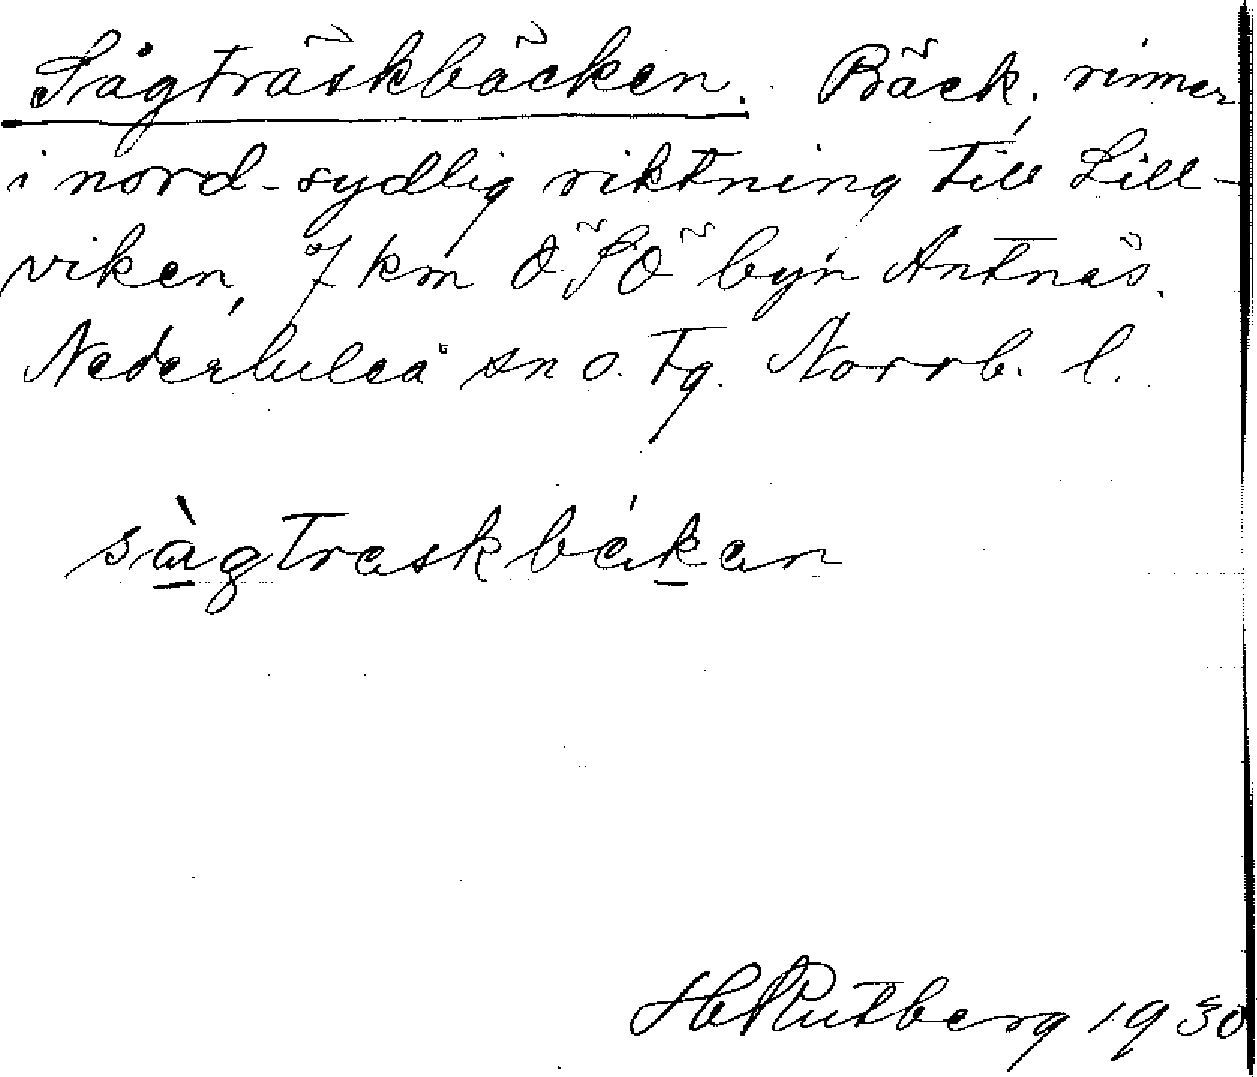 Sågträskbäcken. Bäck, rinner
i nord-sydlig riktning till Lill-
viken, 7 km ÖSÖ byn Antnäs.
Nederluleå sn o. tg. Norrb. l.
sàgtraskbékan
H Rutberg 1930